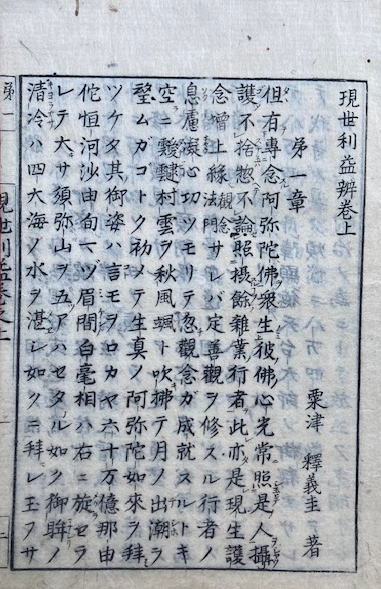 現世利益辨卷上
粟津 釋義圭 著
第一章
但有專念阿弥陀佛衆生彼佛心光常照是人攝
護不捨惣不論照摂餘雜業行者此亦是現生護
念增上緣法門 觀念 サレバ定善觀ヲ修スル行者ノ
息慮凝心功ツモリテ忽觀念ガ成就スルトキ
空ニ靉靆村雲ヲ秋風颯ト吹拂テ月ノ出潮ヲ
望ムガコトク初メテ生真ノ阿弥陀如來ヲ拜
ツケタ其御姿ハ言モヲロカヤ六十万億那由
佗恒河沙由旬一ヅ眉間白毫相ハ右ニ旋セラ
レテ大サ須弥山ヲ五アハセタル如ク御眸ノ
清冷ハ四大海ノ水ヲ湛レ如クニ拜レ玉フサ
現世利益卷之上